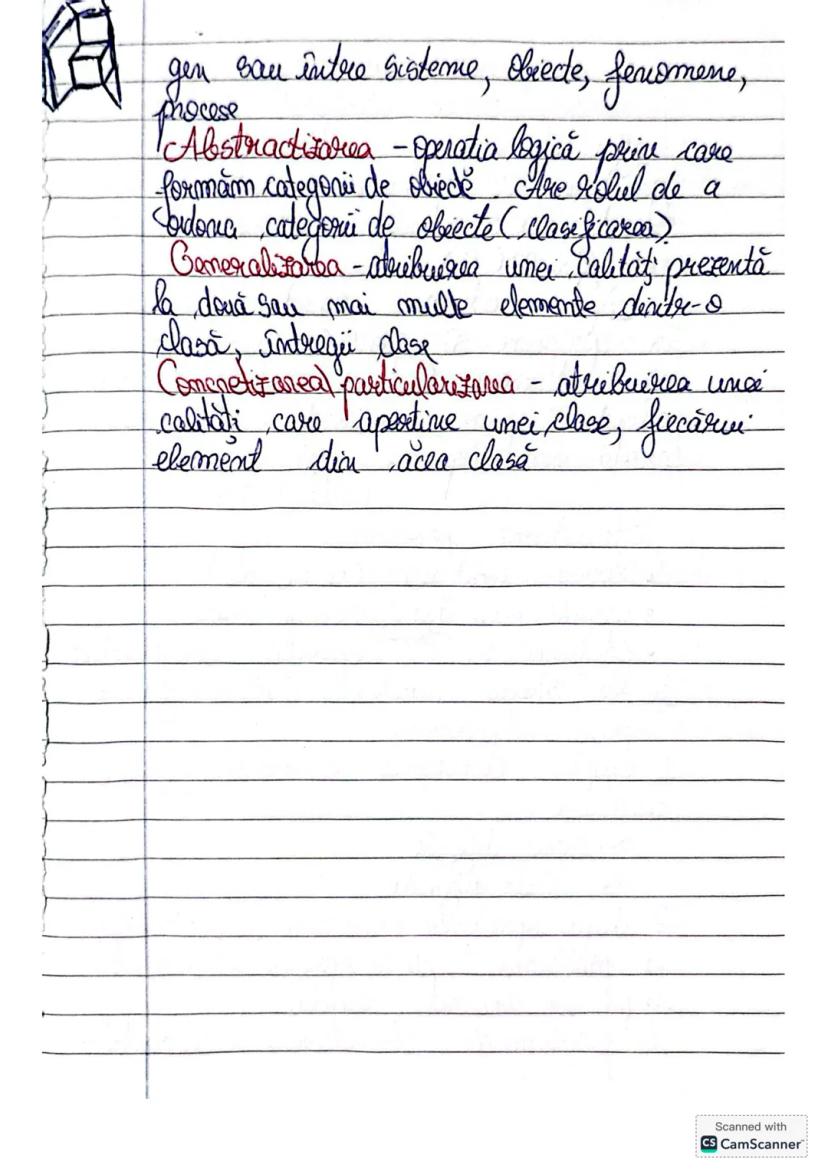 gen sau între sisteme, obiecte, fenomene,
procese
Abstractizarea - operatia logică prin care
formăm categorii de obiecte. Are rolul de a
ordona categorii de obiecte (clasificarea)
Generalizarea - atribuirea unei calități prezentă
la două sau mai multe elemente dintr-o
clasă, întregii clase
Concretizarea/particularizarea - atribuirea unei
calități care apartine unei clase, fiecărui
element din acea clasă
Scanned with
CS CamScanner